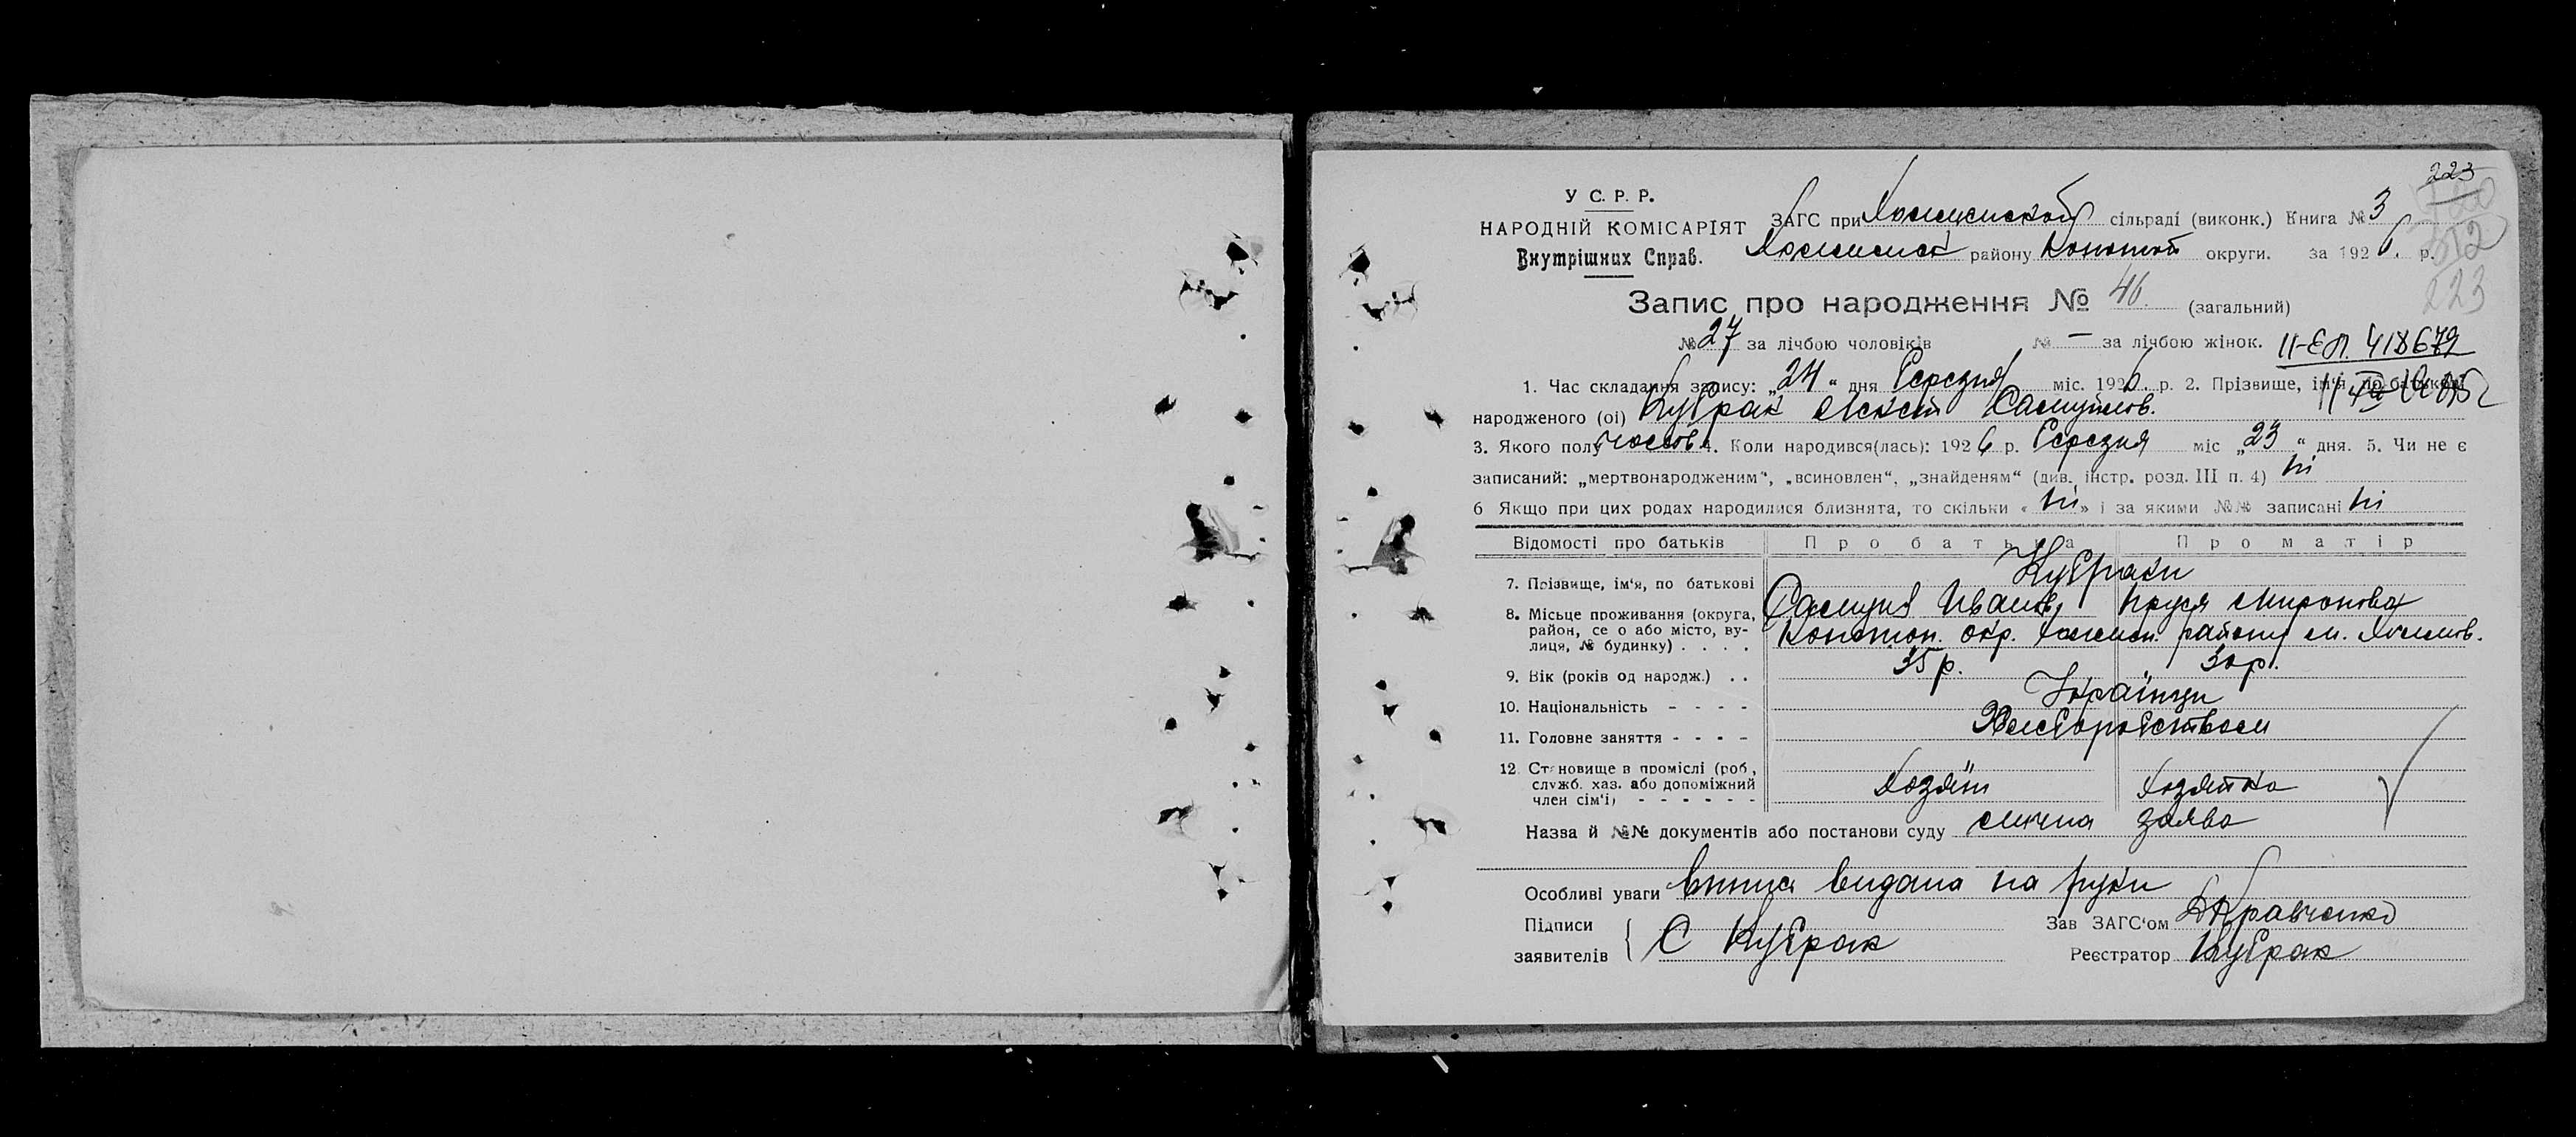 223
У С. Р. Р.
НАРОДНІЙ КОМІСАРІЯТ
Внутрішних Справ.
ЗАГС при сільраді (виконк.) Книга № 3
району Конотоп округи. за 1926. р.
512
223
Запис про народження № 46. (загальний)
№ 27 за лічбою чоловіків № — за лічбою жінок. II-ЕЛ. 418679
1. Час складання запису: „24“ дня Березня міс. 1926. р. 2. Прізвище, ім'я по батькові
народженого (ої) Кубрак Олексій Самуйлов.
3. Якого полу 4. Коли народився(лась): 1926 р. Березня міс „23“ дня. 5. Чи не є
записаний: „мертвонародженим“, „всиновлен“, „знайденям“ (див. інстр. розд. III п. 4) ні
6 Якщо при цих родах народилися близнята, то скільки « ні » і за якими №№ записані ні
Відомості про батьків Про батька Про матір
7. Прізвище, ім'я, по батькові Кубраки
8. Місьце проживання (округа, район, се о або місто, ву-лиця, № будинку) . . . .
Самуил Иванов, Миронова
Конотоп. окр. району м.
9. Вік (років од народж.) . . 35 р. 30 р.
10. Національність - - - - Українци
11. Головне заняття - - - - Хлеборобством
12. Становище в проміслі (роб., служб. хаз. або допоміжний член сім'ї) - - - - - -
Хозяїн Хозяйка
Назва й №№ документів або постанови суду змична заява
Особливі уваги видана на руки
Підписи
заявителів { С Кубрак
Зав ЗАГС'ом Кравченко
Реєстратор Кубрак